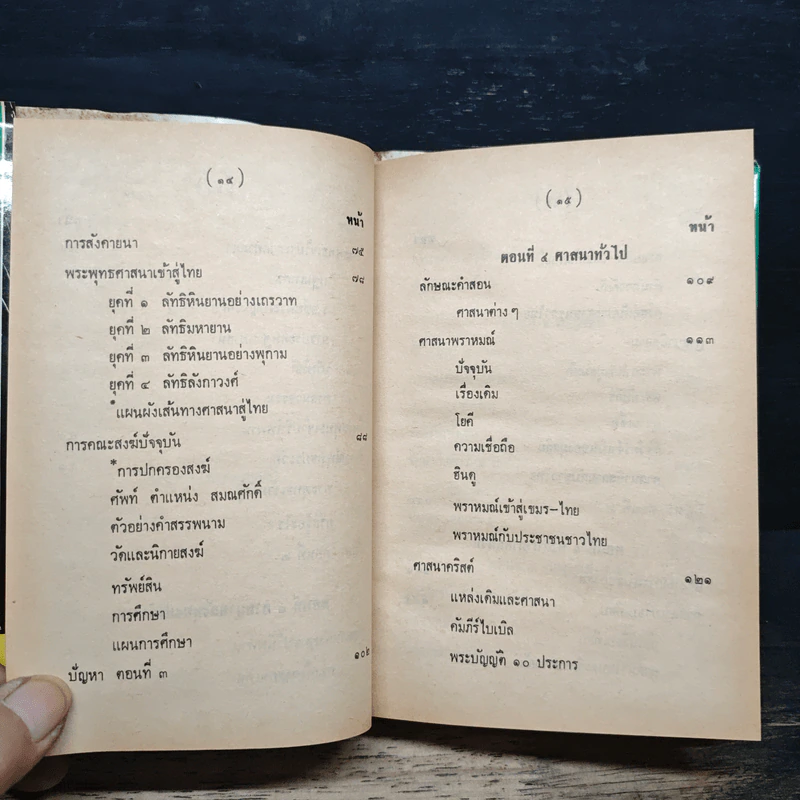 (๑๔)
หน้า
การสังคายนา ๗๕
พระพุทธศาสนาเข้าสู่ไทย ๗๘
ยุคที่ ๑ ลัทธิหินยานอย่างเถรวาท
ยุคที่ ๒ ลัทธิมหายาน
ยุคที่ ๓ ลัทธิหินยานอย่างพุกาม
ยุคที่ ๔ ลัทธิลังกาวงศ์
*แผนผังเส้นทางศาสนาสู่ไทย
การคณะสงฆ์ปัจจุบัน ๘๘
*การปกครองสงฆ์
ศัพท์ ตำแหน่ง สมณศักดิ์
ตัวอย่างคำสรรพนาม
วัดและนิกายสงฆ์
ทรัพย์สิน
การศึกษา
แผนการศึกษา
ปัญหา ตอนที่ ๓ ๑๐๒
(๑๕)
หน้า
ตอนที่ ๔ ศาสนาทั่วไป
ลักษณะคำสอน ๑๐๙
ศาสนาต่าง ๆ
ศาสนาพราหมณ์ ๑๑๓
ปัจจุบัน
เรื่องเดิม
โยคี
ความเชื่อถือ
ฮินดู
พราหมณ์เข้าสู่เขมร-ไทย
พราหมณ์กับประชาชนชาวไทย
ศาสนาคริสต์ ๑๒๑
แหล่งเดิมและศาสนา
คัมภีร์ไบเบิล
พระบัญญัติ ๑๐ ประการ